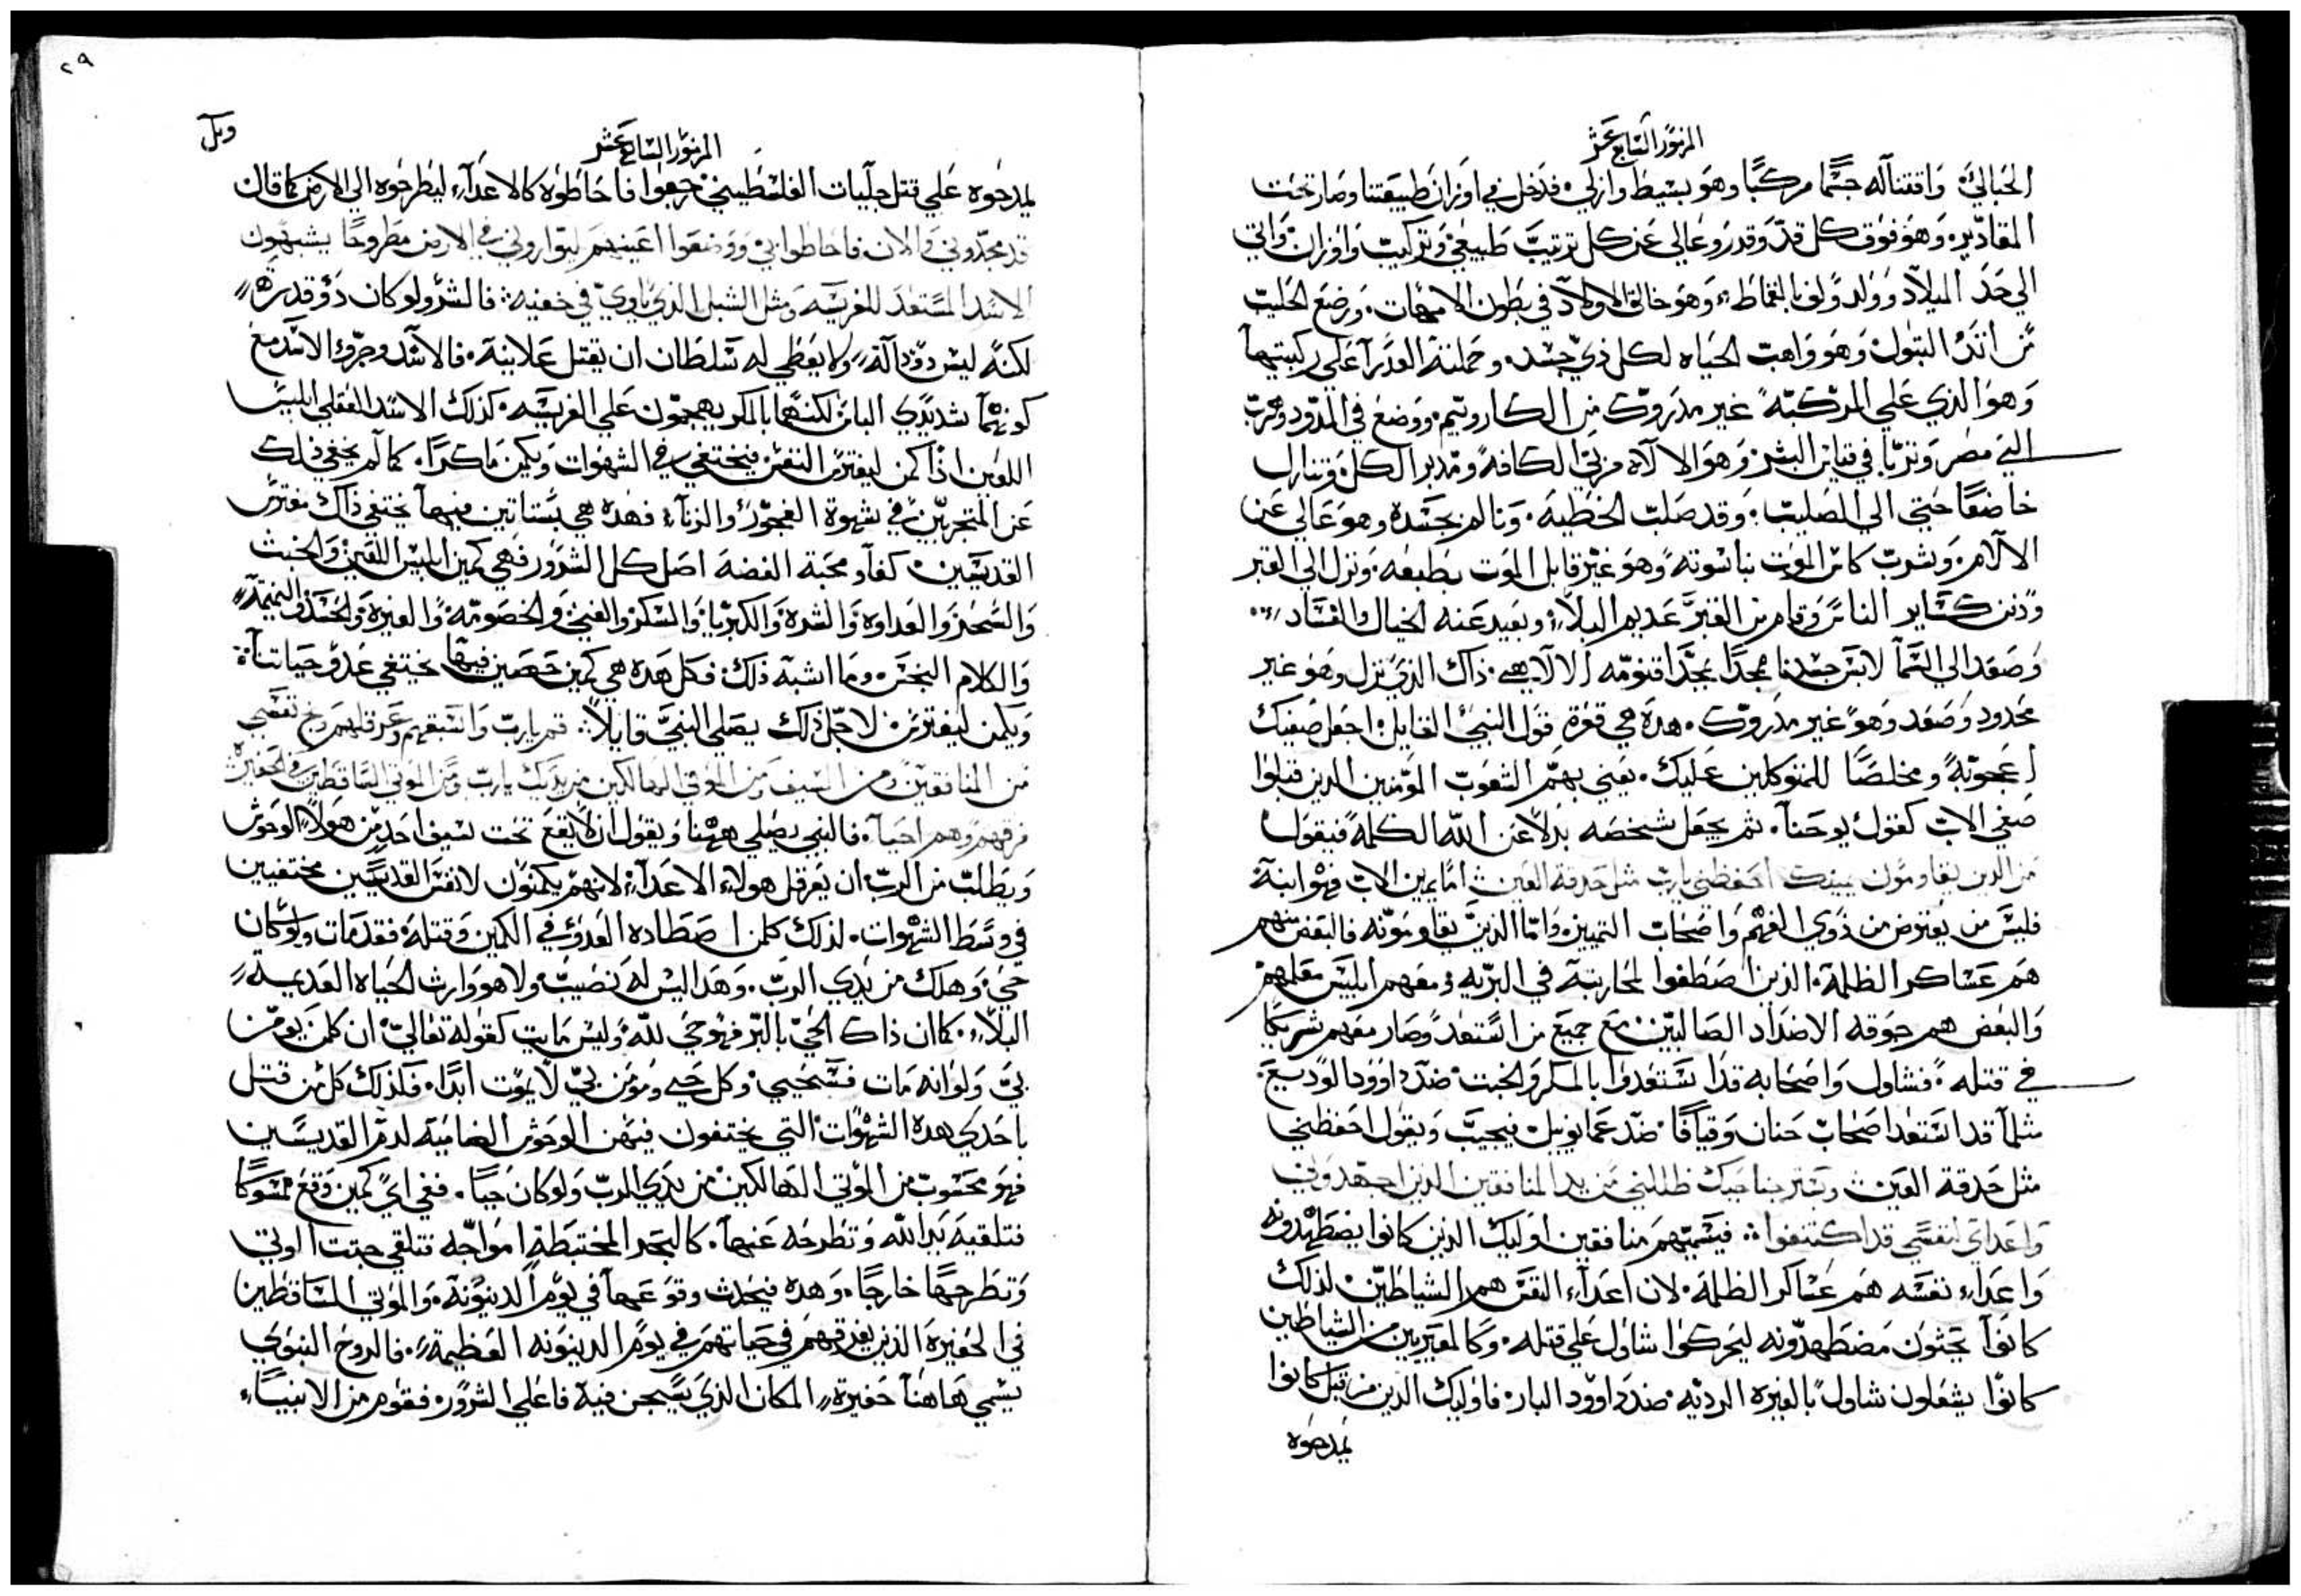 المزمور السابع عشر
الحبالي، واقتناله جسمًا مركبًا وهو بسيط وازلي، فدخل في اوزان طبيعتنا وصار تحت
المقادير، وهو فوق كل قدّ وقدر وعالي عن كل ترتيب طبيعي وتركيب واوزان، واتي
الي حد الميلاد وولد ولف بالقماط، وهو خالق الاولاد في بطون الامهات، ورضع الحليب
من البتول وهو واهب الحياه لكل ذي جسد، وحملته العذرآ علي ركبتيها
وهو الذي علي المركبه غير مدروك من الكاروبيم، ووضع في المدود وهرب
الي مصر وتربا في البشر وهو الالاه مربي الكافه ومدبر الكل، وتنازل
خاضعًا حتي الي الصليب، وقد صلب الخطيه، وتالم بجسده وهو عالي عن
الالام، وشرب كاس الموت بناسوته وهو غير قابل الموت بطبعه، ونزل الي القبر
ودفن كساير الناس، وقام من القبر عديم البلاء، وبعيد عنه الخيال والفساد
وصعد الي السمآ لابس جسدنا ممجدًا بمجد اقنومه الالاهي، ذاك الذي نزل وهو غير
محدود وصعد وهو غير مدروك، هده هي قوة قول النبي القايل، اجعل صفيك
اعجوبةً ومخلصًا للمتوكلين عليك، يعني بهم الشعوب المؤمنين الدين قبلوا
صفي الاب كقول يوحنا، ثم يجعل شخصه بدلاً عن الله الكلمة فيقول
من الدين يقاومون يمينك احفظني يارب مثل حدقة العين: اما يمين الاب فهو ابنه
فليس من يعترض من ذوي الفهم واصحاب التمييز، واما الذين يقاومونه فالبعض منهم
هم عساكر الظلمة، الذين اصطفوا لمحاربته في البريه، ومعهم ابليس معلمهم
والبعض هم جوقه الاضداد الصالبين، مع جميع من استعد وصار معهم شريكًا
في قتله، فشاول واصحابه قد استعدوا بالمكر والخبت ضد داوود الوديع،
مثلما قد استعد اصحاب حنان وقيافا ضد عمانوييل، فيجيب ويقول احفظني
مثل حدقة العين: وبستر جناحيك ظللني من يد المنافقين الدين اجهدوني
واعداي لنفسي قد اكتنفوا: فيسميهم منافقين اوليك الذين كانوا يضطهدونه
واعداء نفسه هم عساكر الظلمة، لان اعداء النفس هم الشياطين، لذلك
كانوا يحثون مضطهدونه ليحركوا شاول علي قتله، من الشياطين
كانوا يشعلون شاول بالغيره الرديه ضد داوود البار، فاوليك الدين من قبل كانوا
يمدحوه
٢٩
ويل
المزمور السابع عشر
يمدحوه علي قتل جليات الفلسطيني رجعوا فاحاطوه كالاعدآء ليطرحوه الي الارض كما قال
والان فاحاطوا بي ووضعوا اعينهم ليتواروني في الارض مطروحًا يشبهون
الاسد المستعد للفريسه ومثل الشبل الذي ياوي في خفيه: فالشرير ولو كان ذو قدرة
لكنه ليس ولا يعطي له سلطان ان يقتل علانية، فالاسد وجرو الاسد مع
كونهما شديدي الباس لكنهما بالمكر يهجمون علي الفريسه، كذلك الاسد العقلي ابليس
اللعين اذا كمن ليفترس النفس، فيختفي في الشهوات ويكمن ماكرًا، كما لم يخفي ذلك
عن المتجربين في شهوة الفجور والزناء، فهذه هي بساتين فيها يختفي ذاك مفترس
القديسين، كفاو محبة الفضة اصل كل الشرور فهي كمين ابليس اللعين والخبث
والسحر والعداوه والشره والكبريا والسكر والغش والخصومه والغيره والحسد والنميمة
والكلام النجس، وما اشبه ذلك، فكل هذه هي كمين فيها يختفي عدو حياتنا
ويكمن ليفترس، لاجل ذلك يصلي النبي قايلاً: قم يارب واسبقهم وعرقلهم ونج نفسي
من المنافقين ومن السيف من الموتي الهالكين من يدك يارب ومن الموتي الساقطين في الحفيرة
فرقهم وهم احيآء، فالنبي يصلي ههنا ويقول ان لا يقع تحت سيف احد من هولاء الوحوش
ويطلب من الرب ان يعرقل هولاء الاعدآء، لانهم يكمنون لانفس القديسين مختفيين
في وسط الشهوات، لذلك كلمن اصطاده العدو في الكمين وقتله فقد مات ولو كان
حي، وهلك من يدي الرب، وهذا ليس له نصيب ولا هو وارث الحياه العديمة
البلاء، كما ان ذاك الحي بالبر فهو حي لله وليس مايت كقوله تعالي، ان كلمن يومن
بي ولو انه مات فسيحيي، وكل حي ومومن بي لا يموت ابدًا، فلذلك كل من قتل
باحدي هده الشهوات التي يختفون فيهن الوحوش الضاميه لدم القديسين
فهو محسوب من الموتي الهالكين من يدي الرب ولو كان حيًا، ففي اي كمين وقع ممسوكًا
فتلقيه يد الله وتطرحه عنها، كالبحر المختبطة امواجه تتلقي جتت الموتي
وتطرحها خارجًا، وهده فيحدث وقوعها في يوم الدينونه، والموتي الساقطين
في الحفيرة الذين يفرقهم في حياتهم في يوم الدينونه العظيمة، فالروح النبوي
يسمي هاهنا حفيرة المكان الذي يسجن فيه فاعلي الشرور، فقوم من الانبياء